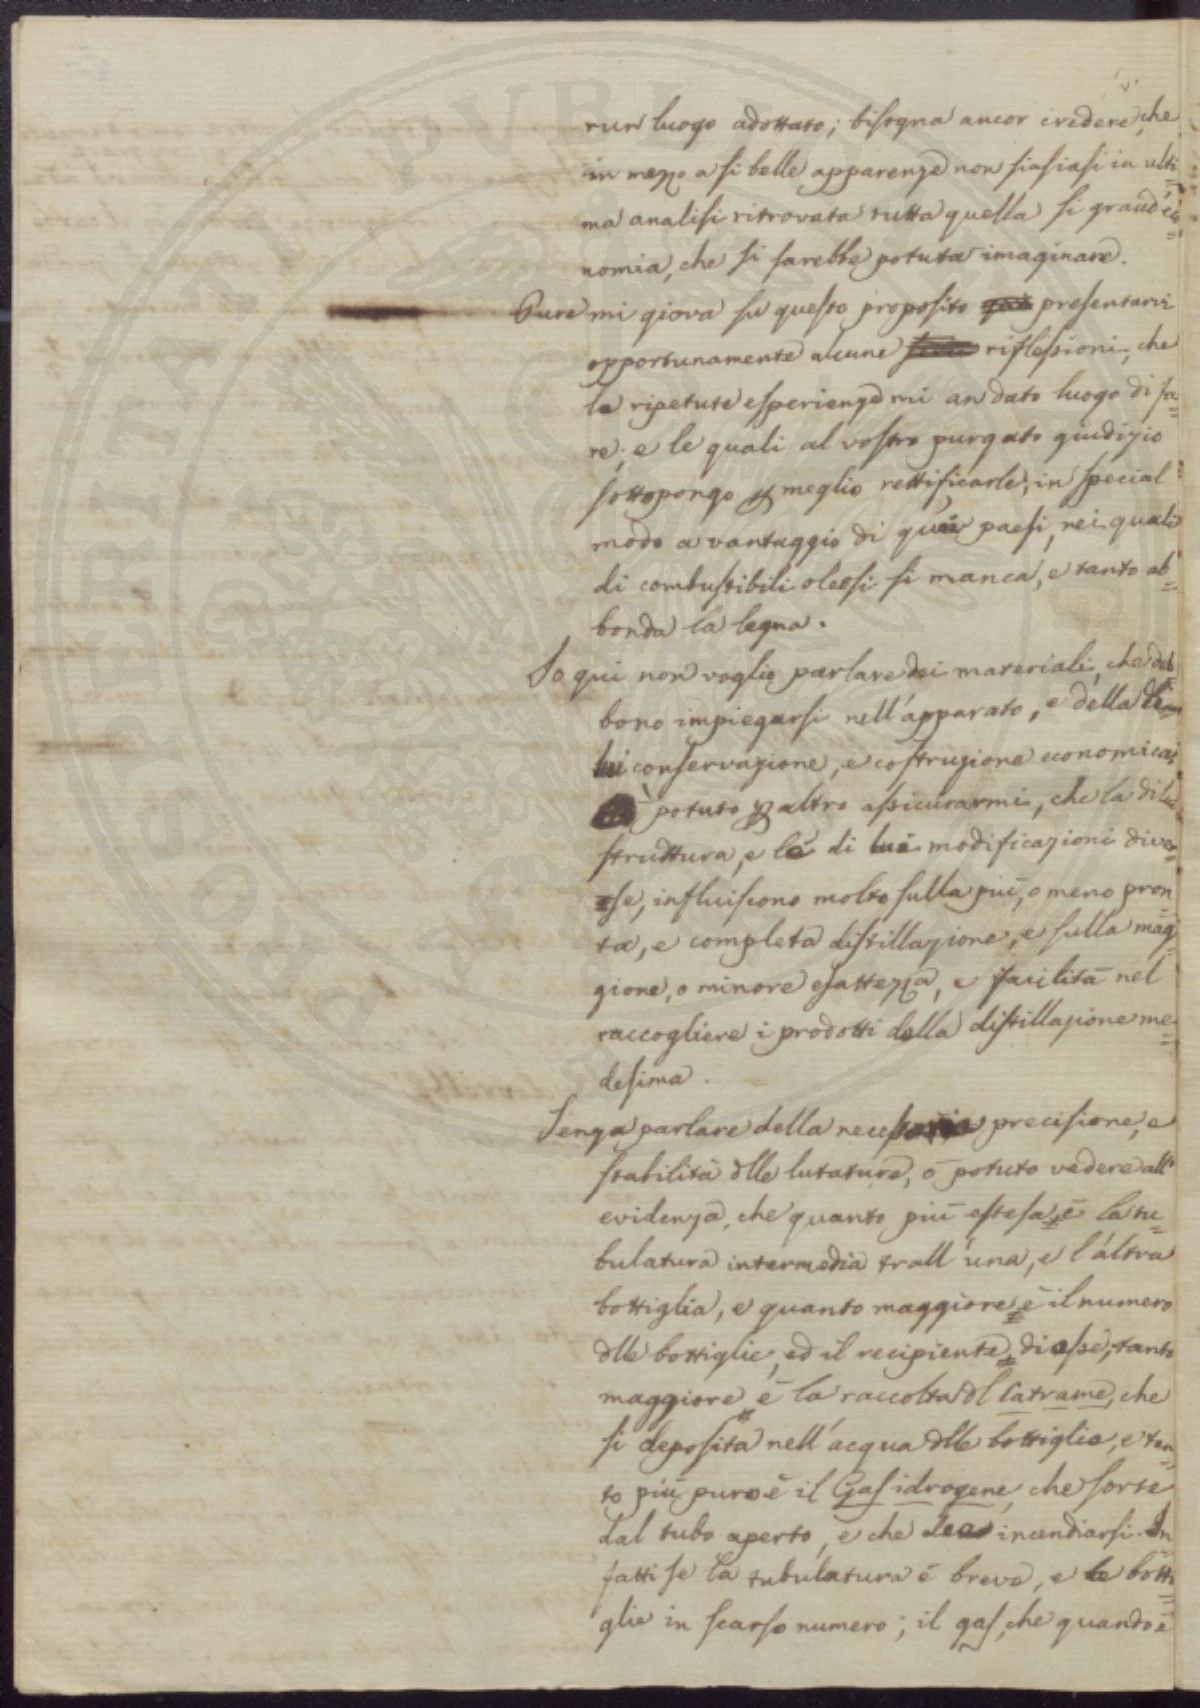 run luogo adottato; bisogna ancor credere, che
in mezzo a si belle apparenze non siasi in ulti=
ma analisi ritrovata tutta quella si grand' eco=
nomia, che si sarebbe potuta imaginare.
Pure mi giova su questo proposito presentarvi
opportunamente alcune riflessioni, che
le ripetute esperienze mi an dato luogo di fa=
re; e le quali al vostro purgato giudizio
sottopongo per meglio rettificarle; in special
modo a vantaggio di quei paesi, nei quali
di combustibili oleosi si manca, e tanto ab=
bonda la legna.
Io qui non voglio parlare dei materiali, che deb
bono impiegarsi nell'apparato, e della di
lui conservazione, e costruzione economica;
ò potuto per altro assicurarmi, che la di lui
struttura, e le di lui modificazioni diver=
se, influiscono molto sulla più, o meno pron=
ta, e completa distillazione, e sulla mag=
giore, o minore esattezza, e facilità nel
raccogliere i prodotti della distillazione me=
desima.
Senza parlare della necessaria precisione, e
stabilità dlle lutature, ò potuto vedere all'
evidenza, che quanto più estesa è la tu=
bulatura intermedia trall'una, e l'altra
bottiglia, e quanto maggiore è il numero
dlle bottiglie, ed il recipiente di esse, tanto
maggiore è la raccolta dl Catrame, che
si deposita nell'acqua dlle bottiglie, e tan=
to più puro è il Gas idrogene, che sorte
dal tubo aperto, e che dee incendiarsi. In
fatti se la tubulatura è breve, e le botti=
glie in scarso numero; il gas, che quando è